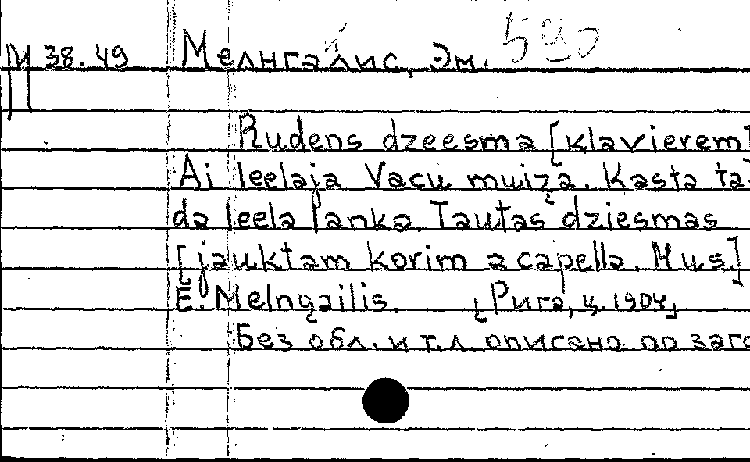 М 38.49 Мелнгайлис, Эм. 590
Rudens dzeesma [klavierem]
Ai leelaja Vacu muiža. Kasta ta-
da leela lanka. Tautas dziesmas
[jauktam korim a capella. Mus.]
E. Melngailis. [Рига, ц. 1904]
Без обл. и т.л. описано по заго